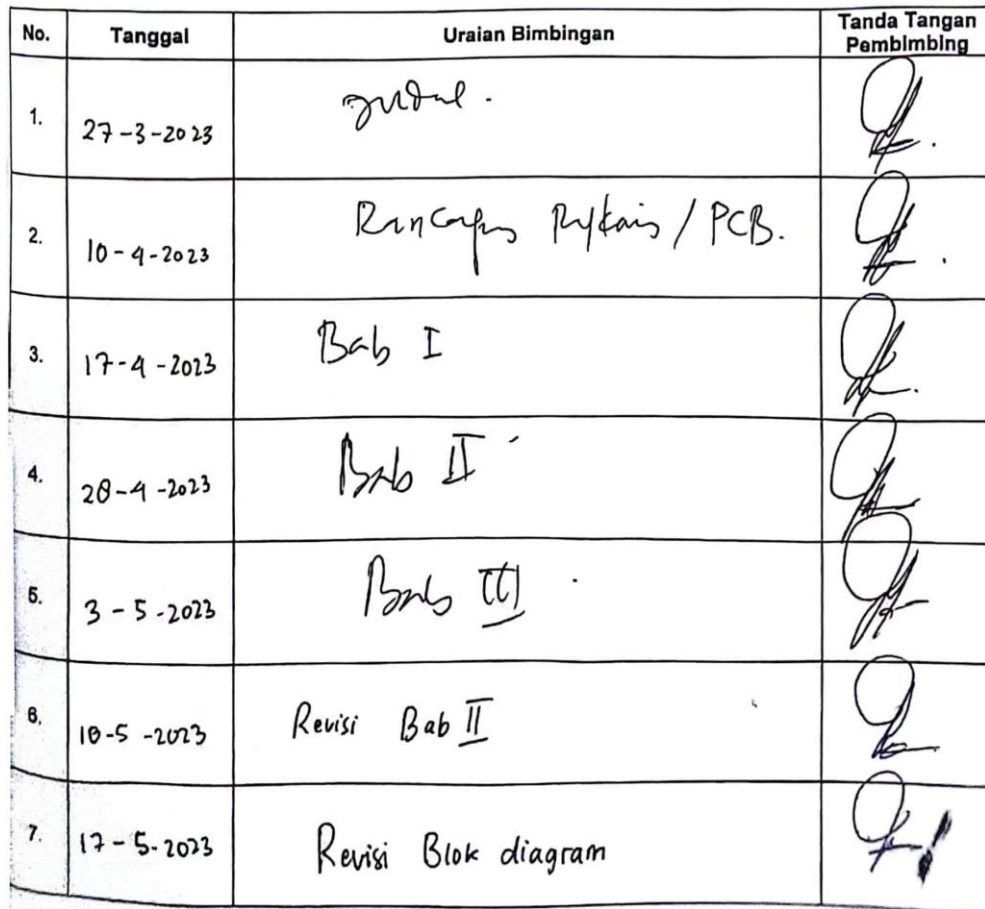 No. Tanggal Uraian Bimbingan Tanda Tangan
Pembimbing
1. 27-3-2023 Judul.
2. 10-4-2023 / PCB.
3. 17-4-2023 Bab I
4. 28-4-2023 Bab II
5. 3-5-2023 Bab III
6. 10-5-2023 Revisi Bab II
7. 17-5-2023 Revisi Blok diagram